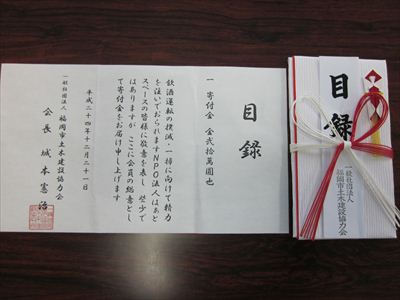 目録
一 寄付金 金弐拾萬圓也
飲酒運転の撲滅・一掃に向けて精力
を注いでおられますNPO法人はぁと
スペースの皆様に敬意を表し 些少で
はありますが ここに会員の総意とし
て寄付金をお届け申し上げます
平成二十四年十二月二十一日
一般社団法人 福岡市土木建設協力会
会長 城本憲治
目録
一般社団法人
福岡市土木建設協力会